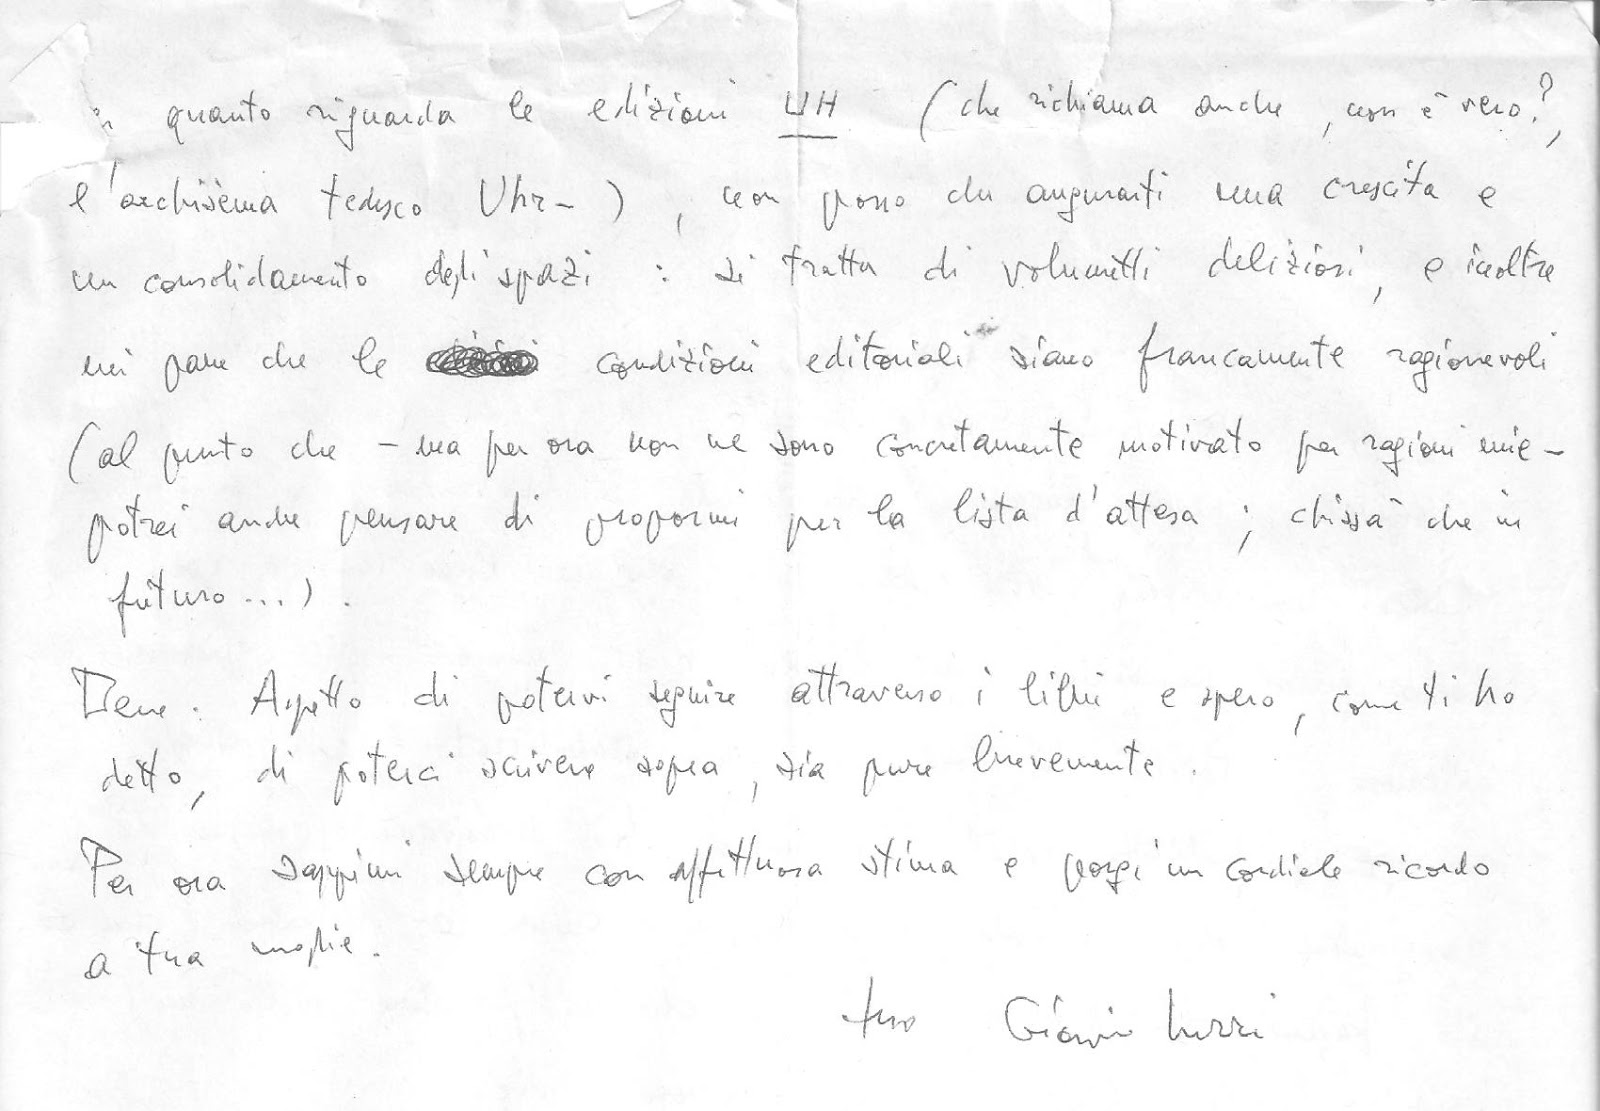 quanto riguarda le edizioni UH (che richiama anche, non è vero?,
l'archisèma tedesco Uhr-), non posso che augurarti una crescita e
un consolidamento degli spazi: si tratta di volumetti deliziosi, e inoltre
mi pare che le condizioni editoriali siano francamente ragionevoli
(al punto che - ma per ora non ne sono concretamente motivato per ragioni mie -
potrei anche pensare di propormi per la lista d'attesa; chissà che in
futuro...).
Bene. Aspetto di potervi seguire attraverso i libri e spero, come ti ho
detto, di poterci scrivere sopra, sia pure brevemente.
Per ora sappimi sempre con affettuosa stima e porgi un cordiale ricordo
a tua moglie.
tuo